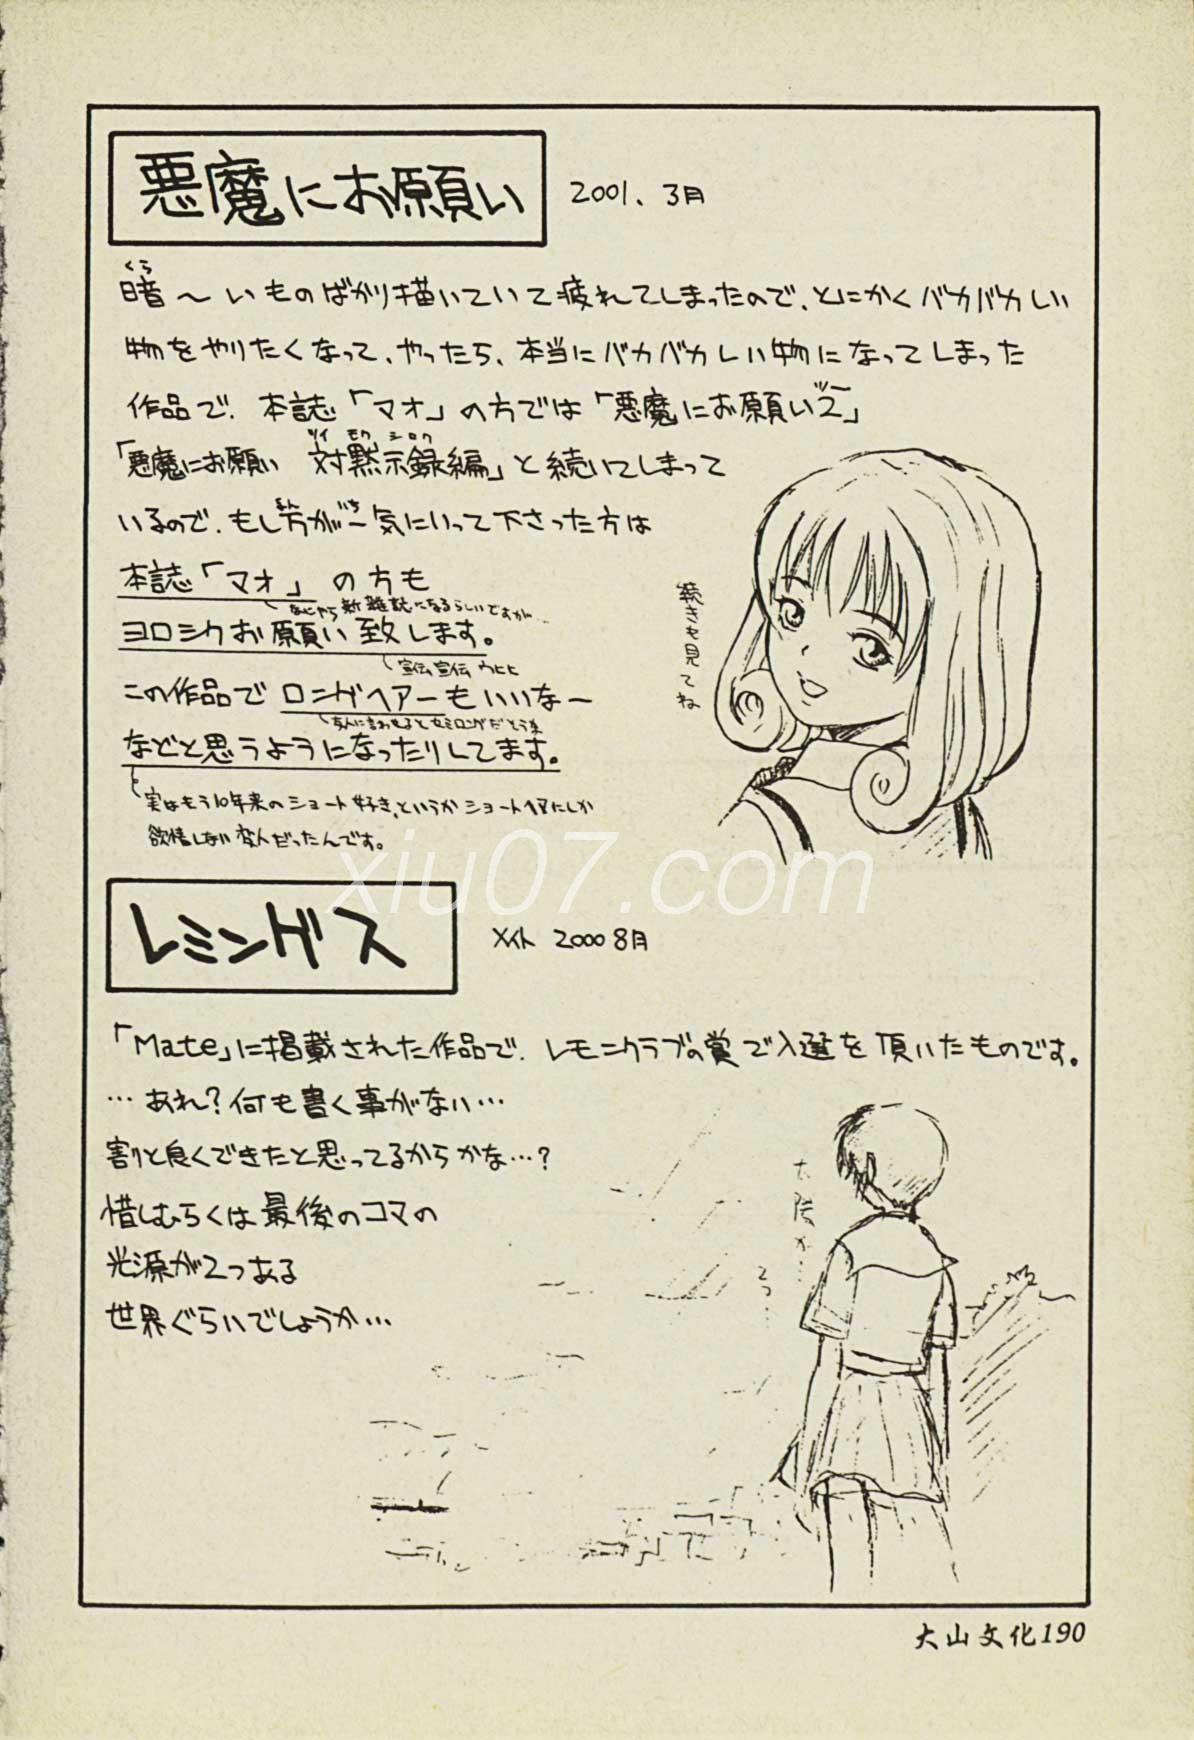 悪魔にお願い 2001、3月
くら
暗〜いものばかり描いていて疲れてしまったので、とにかくバカバカしい
物をやりたくなって、やったら、本当にバカバカしい物になってしまった
ツー
作品で、本誌「マオ」の方では「悪魔にお願い2」
ツイ モク シロク
「悪魔にお願い 対黙示録編」と続いてしまって
まん いち
いるので、もし万が一気にいって下さった方は
本誌「マオ」の方も
なにやら新雑誌になるらしいですが…
ヨロシクお願い致します。
宣伝宣伝 ウヒヒ
この作品でロングヘアーもいいなー
友人に言わせるとセミロングだとうよ
などと思うようになったりしてます。
実はもう10年来のショート好き、というかショートヘアにしか
欲情しない変人だったんです。
続きも見てね
xiu07.com
レミングス メイト 2000 8月
「Mate」に掲載された作品で、レモンクラブの賞で入選を頂いたものです。
…あれ?何も書く事がない…
割と良くできたと思ってるからかな…?
惜しむらくは最後のコマの
光源が2つある
世界ぐらいでしょうか…
太陽が…
2つ…
大山文化190